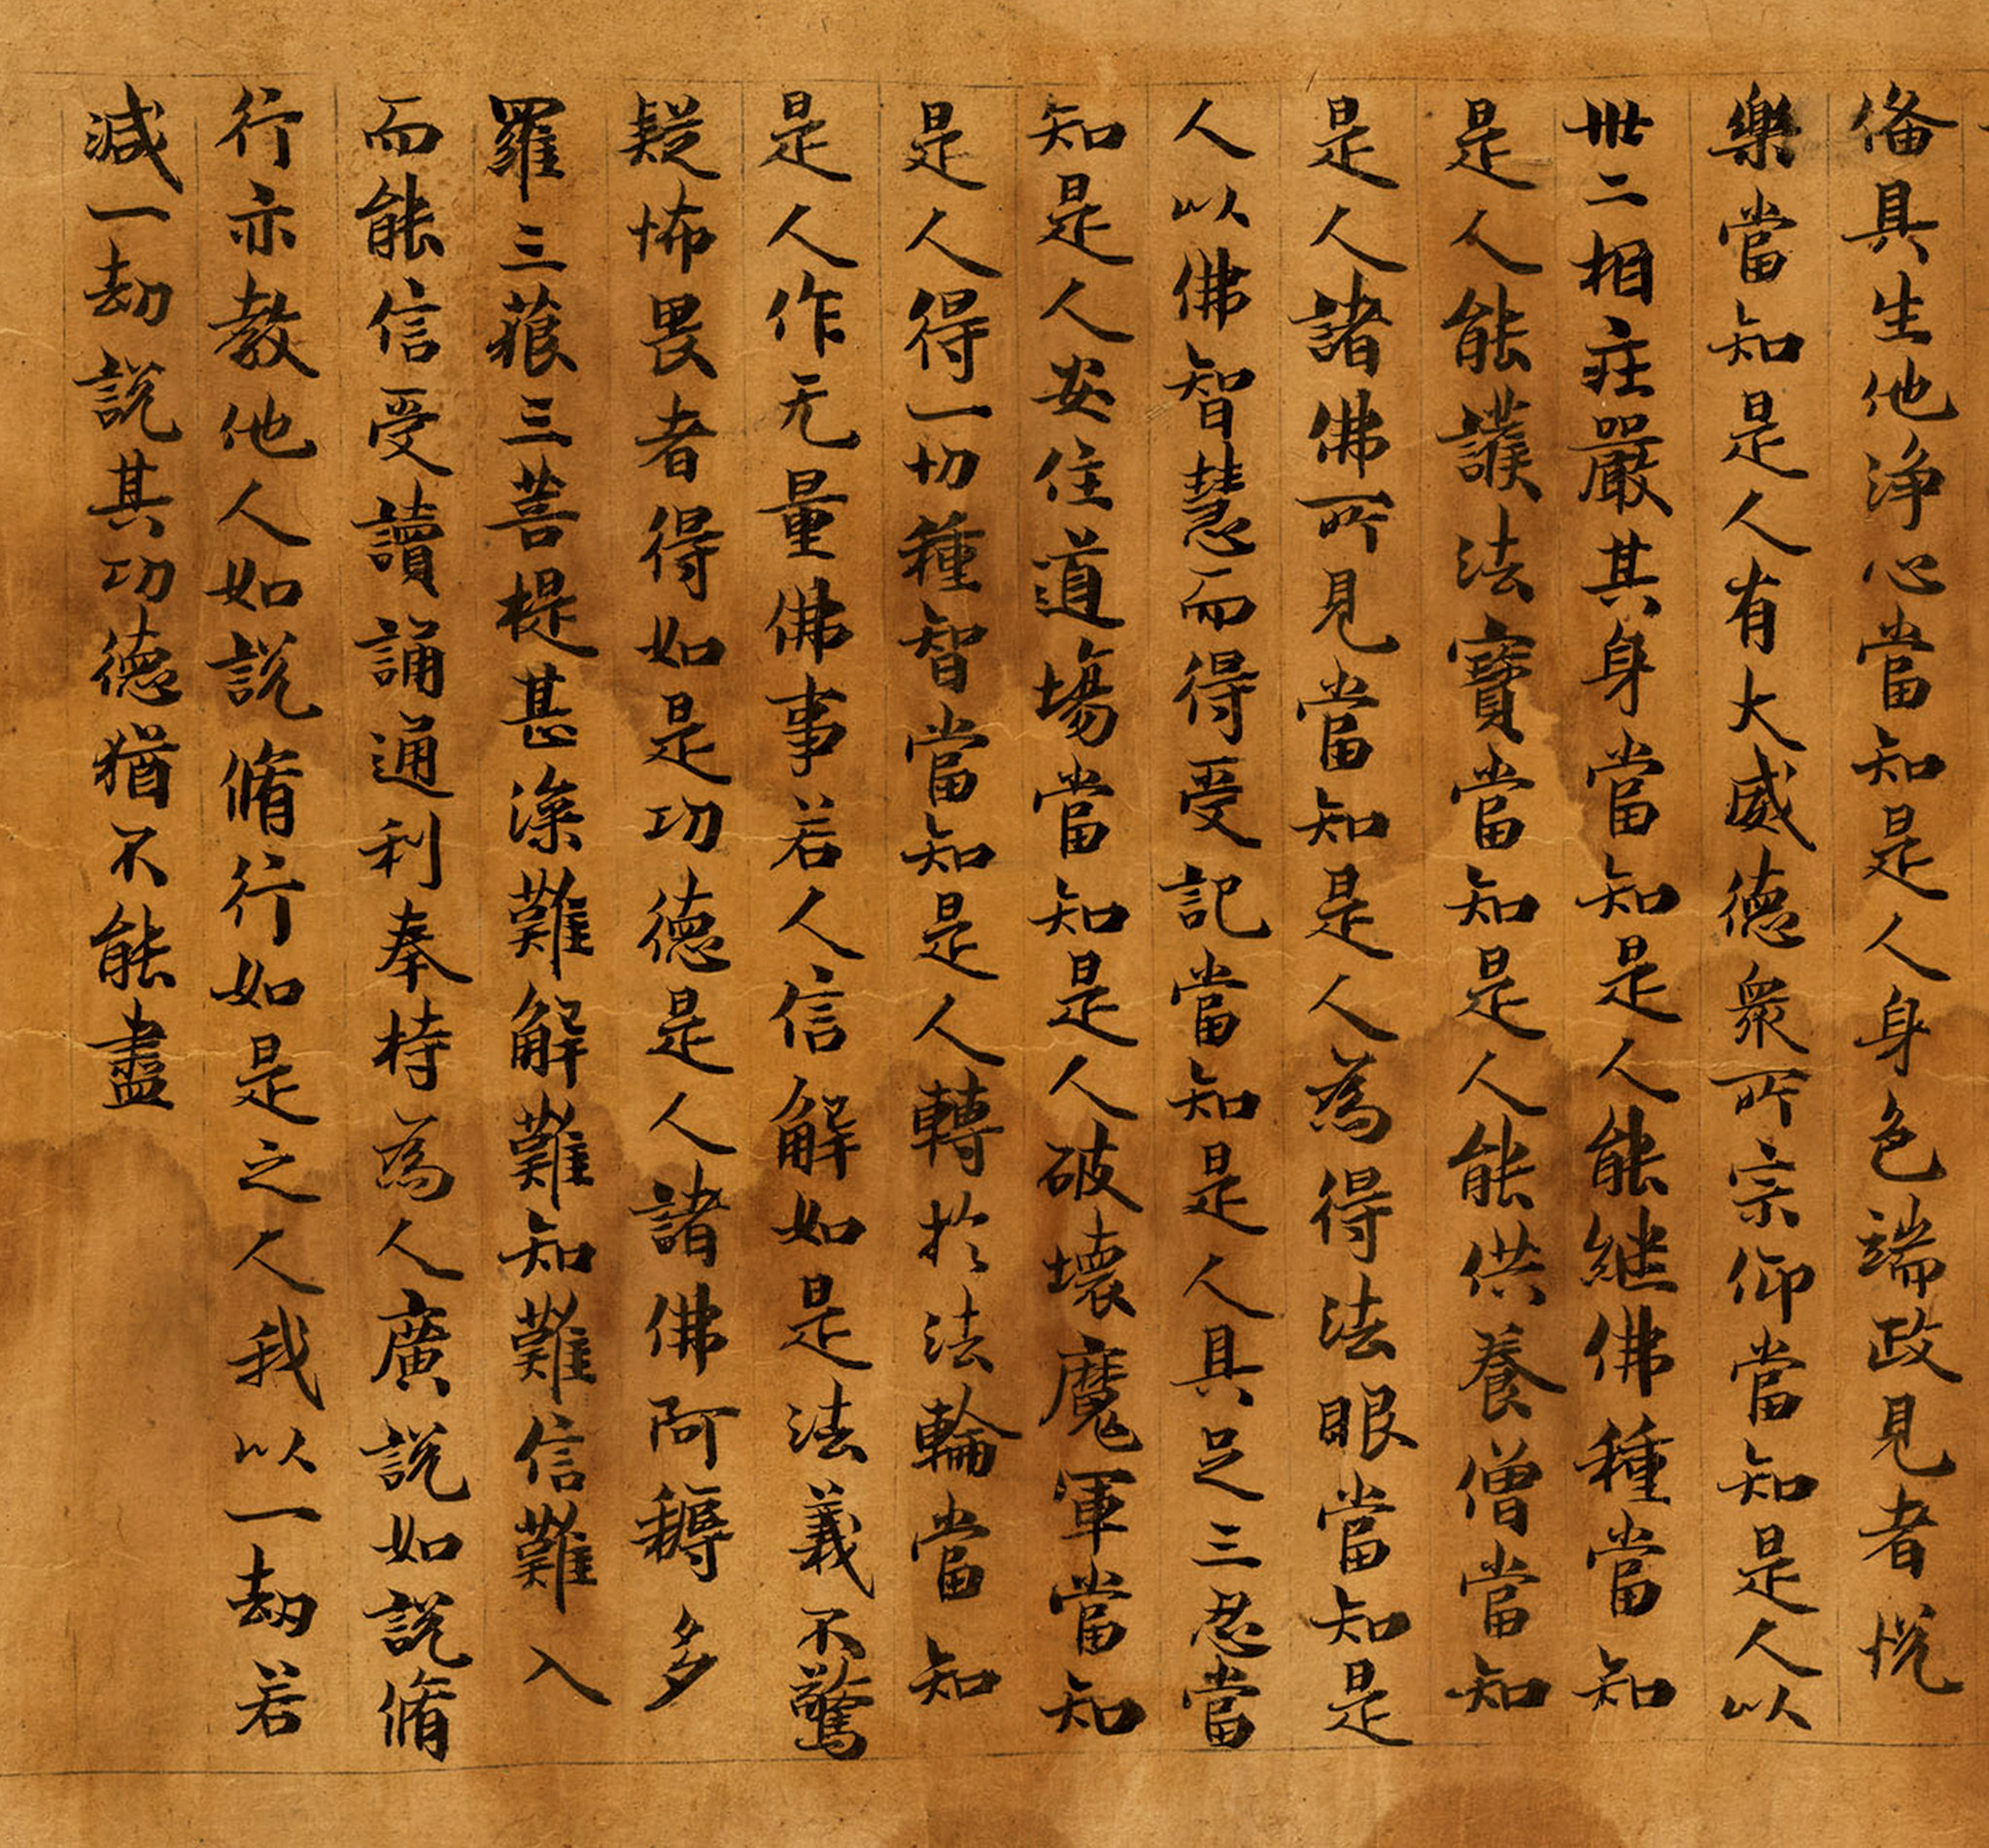 俻具生他淨心當知是人身色端政見者悦
樂當知是人有大威德衆所宗仰當知是人以
卅二相疘嚴其身當知是人能継佛種當知
是人能護法寶當知是人能供養僧當知
是人諸佛所見當知是人為得法眼當知是
人以佛智慧而得受記當知是人具足三忍當
知是人安住道場當知是人破壞魔軍當知
是人得一切種智當知是人轉於法輪當知
是人作无量佛事若人信解如是法義不驚
疑怖畏者得如是功德是人諸佛阿耨多
羅三藐三菩提甚深難解難知難信難入
而能信受讀誦通利奉持為人廣說如說脩
行亦教他人如說脩行如是之人我以一劫若
減一劫說其功德猶不能盡